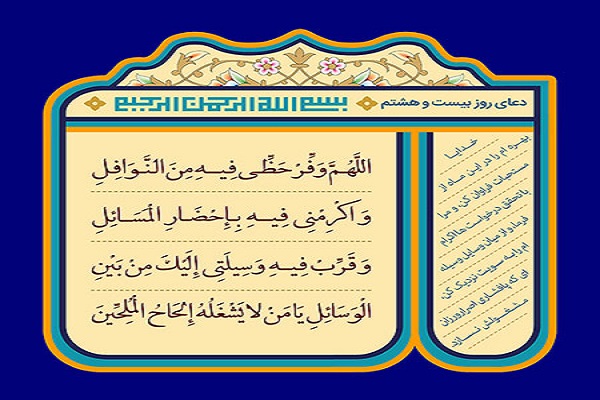 دعای روز بیست و هشتم
بسم الله الرحمن الرحیم
اللَّهُمَّ وَفِّرْ حَظِّی فِیهِ مِنَ النَّوَافِلِ
وَ اَکْرِمْنِی فِیهِ بِإِحْضَارِ الْمَسَائِلِ
وَ قَرِّبْ فِیهِ وَسِیلَتِی إِلَیْكَ مِنْ بَیْنِ
الْوَسَائِلِ یَا مَنْ لا یَشْغَلُهُ إِلْحَاحُ الْمُلِحِّینَ
خدایا
بهره ام را در این ماه از
مستحبات فراوان کن، و مرا
با تحقق درخواست ها اکرام
فرما، و از میان وسایل وسیله
ام را به سویت نزدیک کن،
ای که پافشاری اصرارورزان
مشغولش نسازد